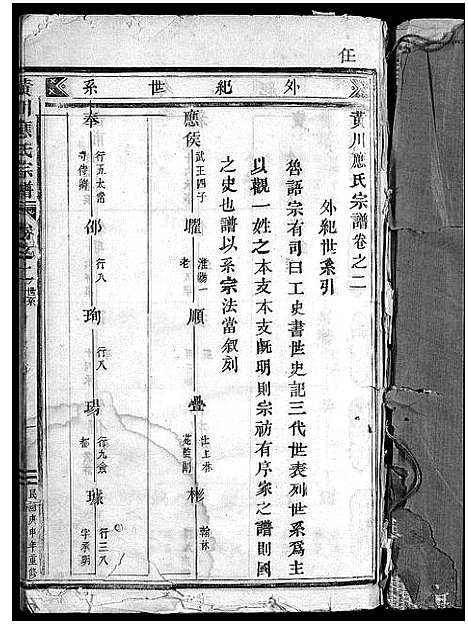 任
黄川應氏宗譜卷之二
外紀世系引
魯語宗有司曰工史書世史記三代世表列世系為主
以觀一姓之本支本支既明則宗祊有序家之譜則國
之史也譜以系宗法當叙列
外紀世系
應侯 武王四子
曜 淮陽一老
順
疊 仕上林苑監副
彬 翰林
奉 行五太常寺
邵 行八
珣 行八
瑒 行九
璩 行三八
黄川應氏宗譜
民國庚申年重修